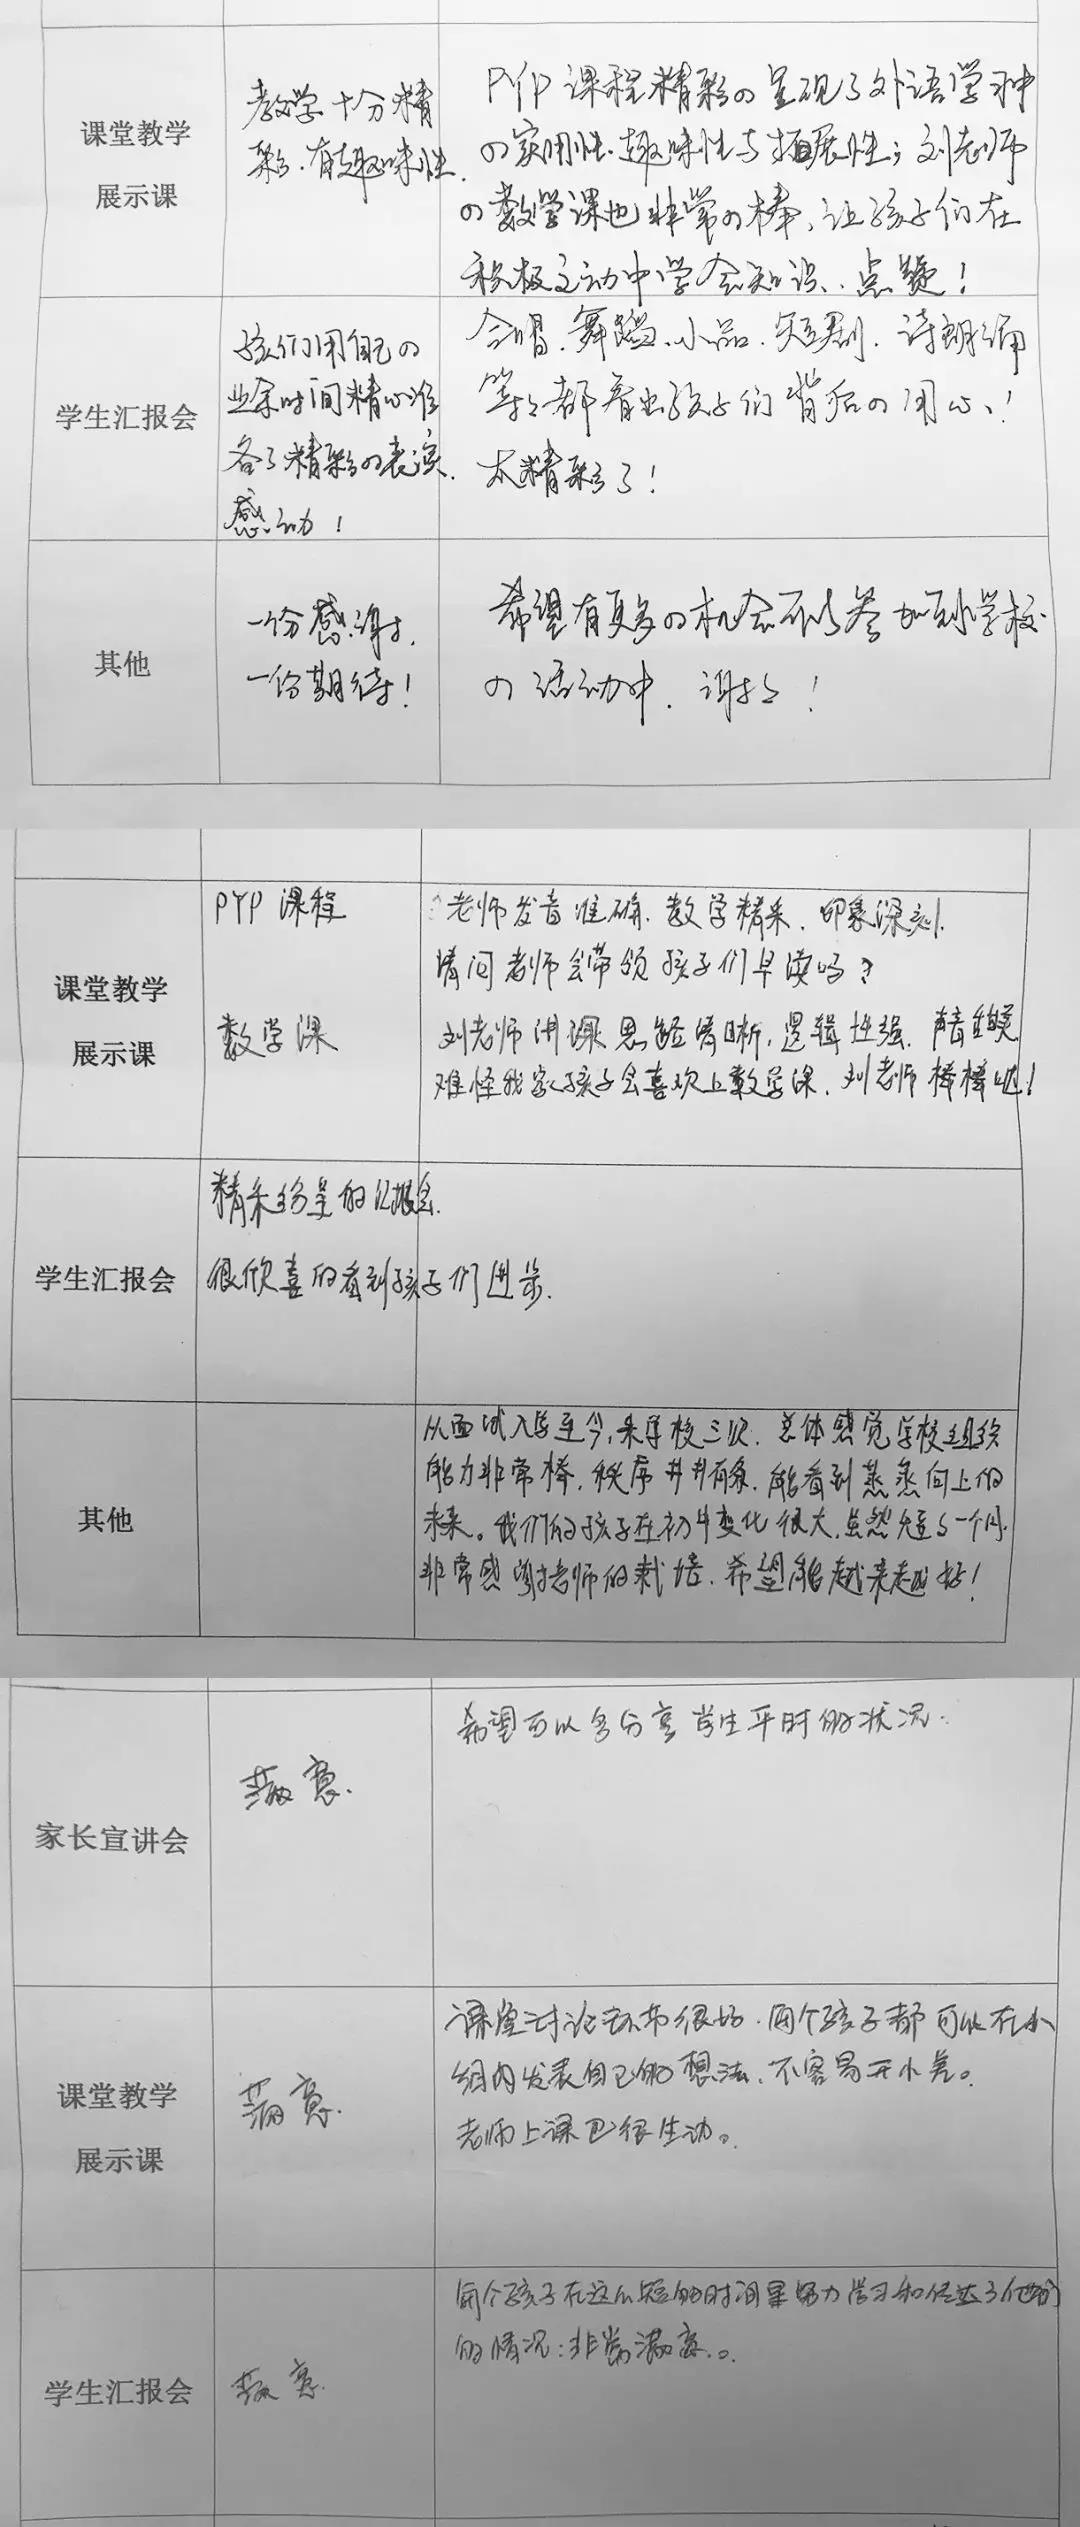 课堂教学
展示课
教学十分精
彩.有趣味性.
PYP 课程精彩の呈现了外语学科中
の实用性.趣味性与拓展性;刘老师
の数学课也非常の棒、让孩子们在
积极主动中学会知识、点赞!
学生汇报会
孩们用自己の
业余时间精心准
备了精彩の表演.
感动!
合唱.舞蹈、小品.短剧.诗朗诵
等等都看出孩子们背后の用心、!
太精彩了!
其他
一份感谢,
一份期待!
希望有更多の机会可以参加到学校
の活动中.谢谢!
课堂教学
展示课
PYP 课程
老师发音准确.教学精采.印象深刻.
请问老师会带领孩子们早读吗?
数学课
刘老师讲课思路清晰,逻辑性强.声音
难怪我家孩子会喜欢上数学课.刘老师棒棒哒!
学生汇报会
精采纷呈的汇报会.
很欣喜的看到孩子们进步.
其他
从面试入学至今,来学校三次.总体感觉学校组织
能力非常棒.秩序井井有条.能看到蒸蒸向上的
未来。我们的孩子在初中变化很大.虽然短短一个月.
非常感谢老师的栽培.希望能越来越好!
家长宣讲会
满意.
希望可以多分享学生平时的状况.
课堂教学
展示课
满意.
课堂讨论环节很好.每个孩子都可以在小
组内发表自己的想法、不容易开小差。
老师上课也很生动。
学生汇报会
满意.
每个孩子在这么短的时间里努力学习和传达了他们
的情况:非常满意.。